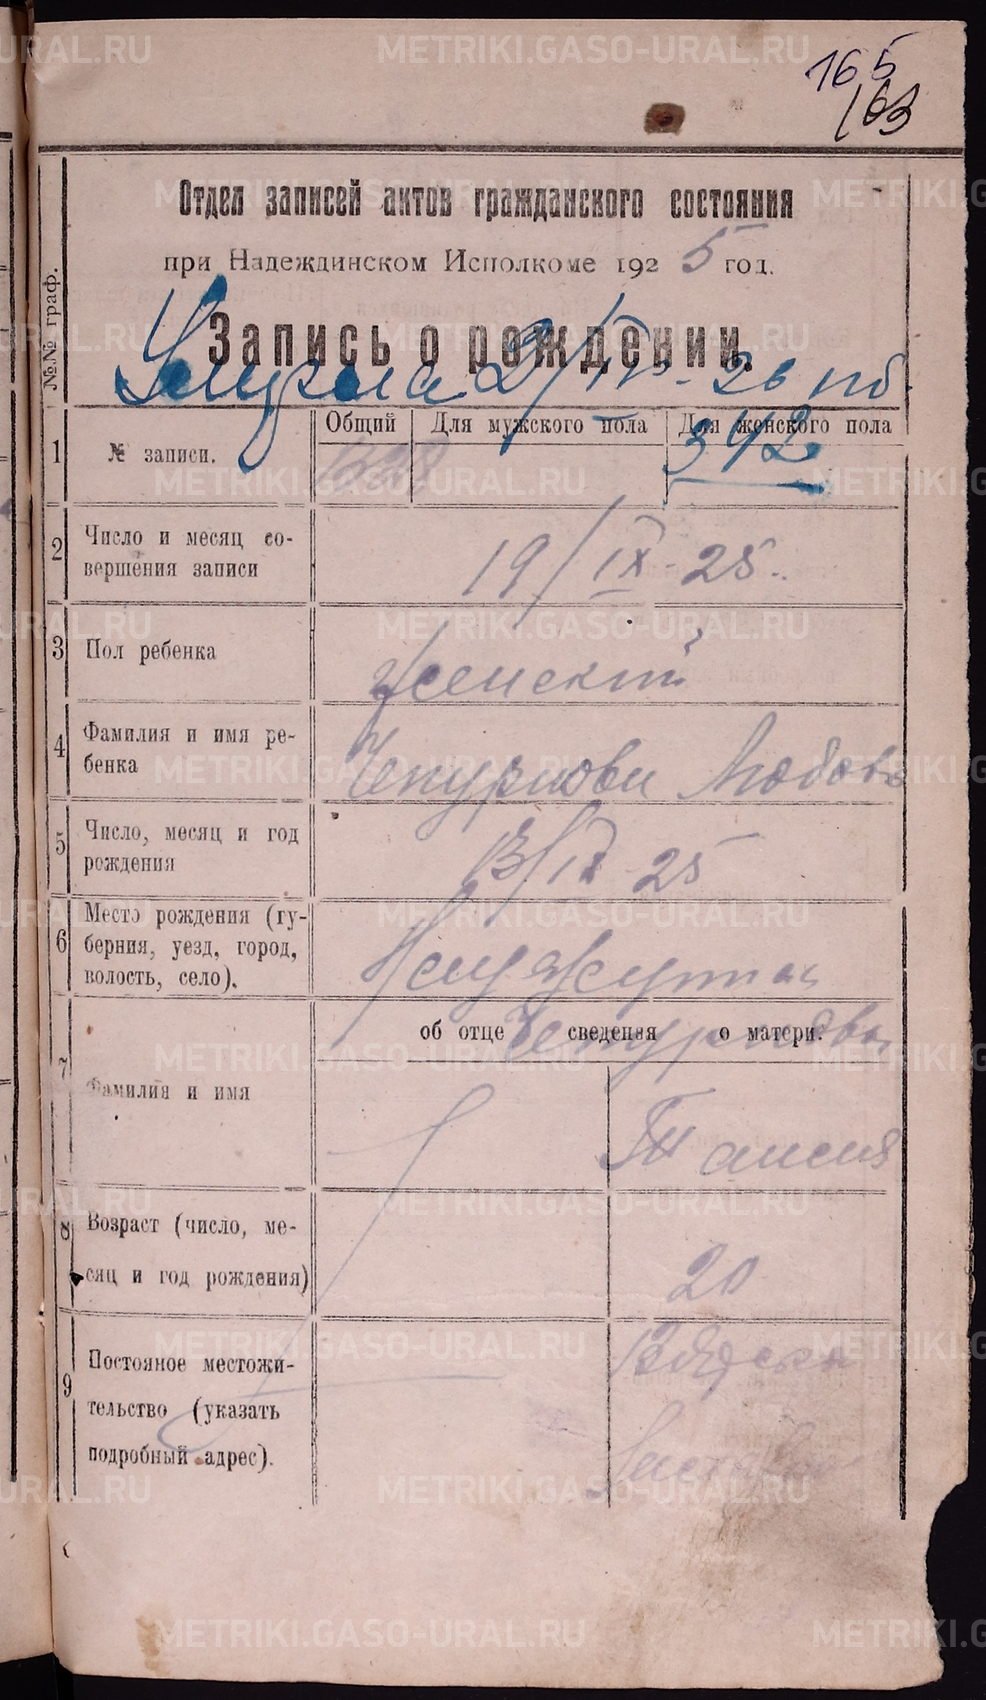 165
163
Отдел записей актов гражданского состояния
при Надеждинском Исполкоме 1925 год.
Запись о рождении.
Умерла 2/IV-26
№№ граф.
Общий Для мужского пола Для женского пола
1 № записи. 342
2 Число и месяц со-
вершения записи
19/IX-25.
3 Пол ребенка
Женский
4 Фамилия и имя ре-
бенка
Чепурнова Любовь
5 Число, месяц и год
рождения
13/IX 25
6 Место рождения (гу-
берния, уезд, город,
волость, село).
об отце сведения о матери.
7 Фамилия и имя
Чепурнова
Таисия
8 Возраст (число, ме-
сяц и год рождения)
20
9 Постояное местожи-
тельство (указать
подробный адрес).
METRIKI.GASO-URAL.RU